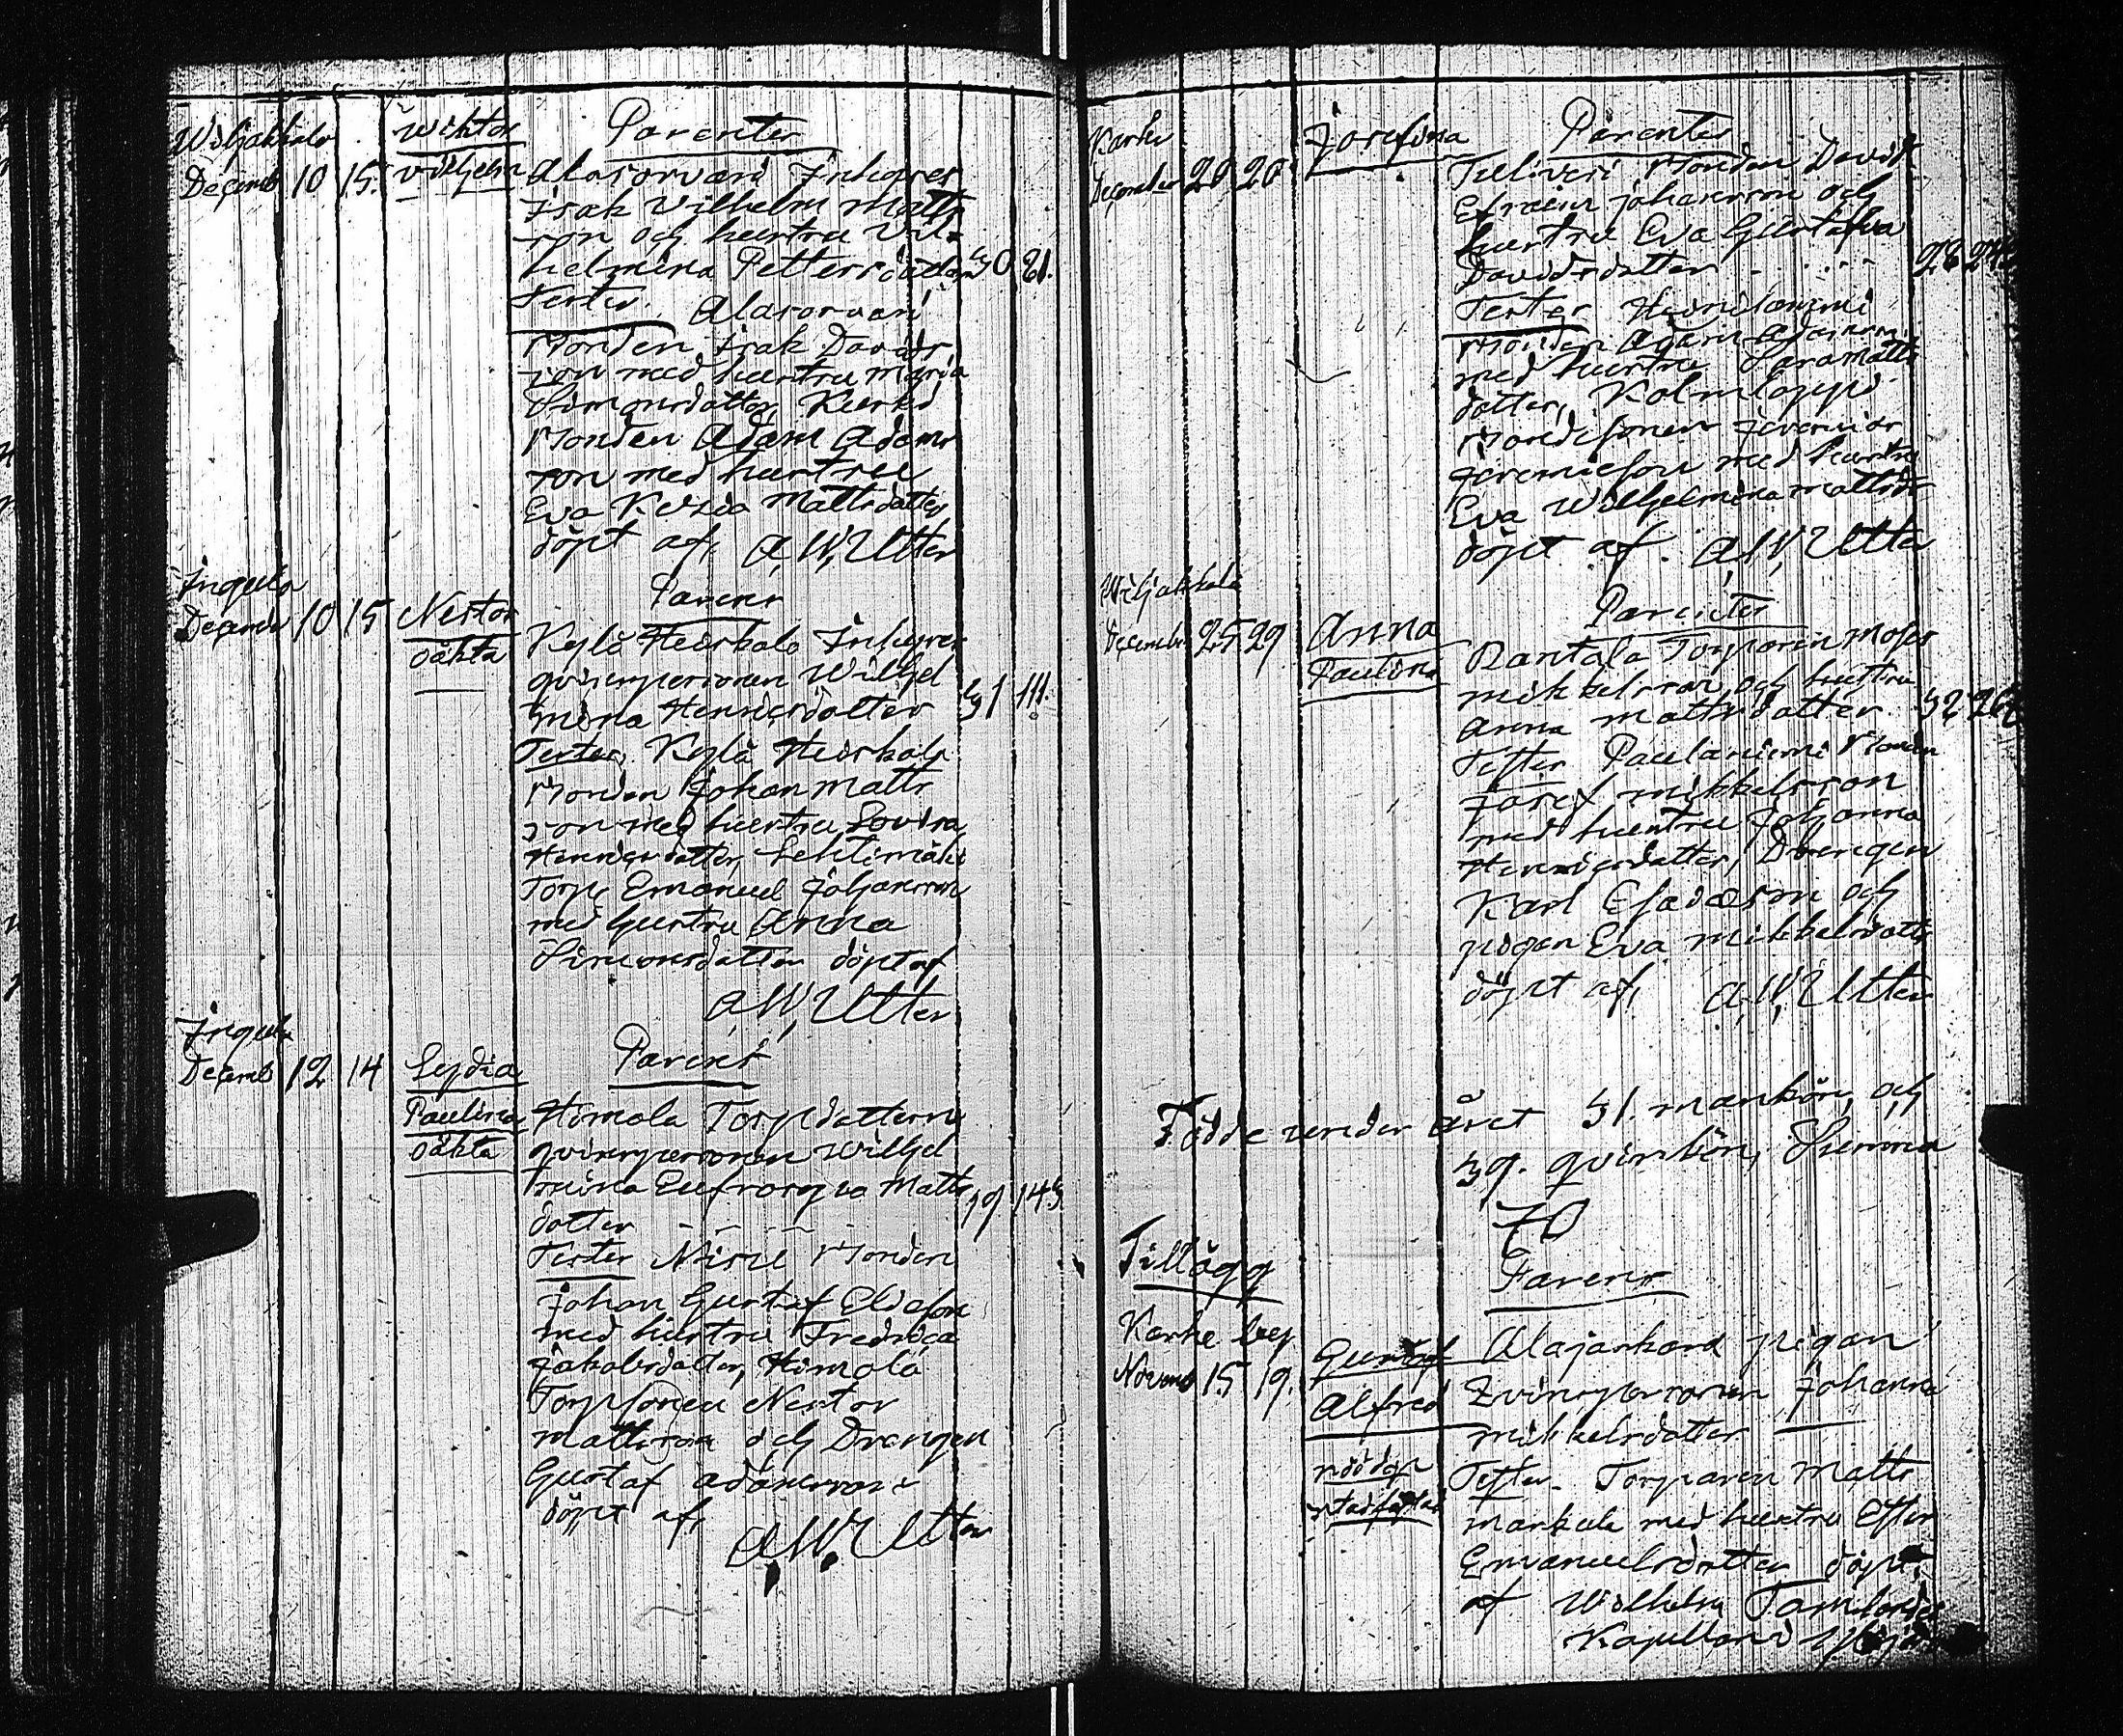 Wiljakkala
Decemb 10 15. Wiktor Vilhjelm
Parenter
Alasorvari Inhyses
Isak Vilhelm Matts
son och hustru Vil
helmina Pettersdotter 30 21.
Tester. Alasorvari
Bonden Isak Davids
son med hustru Maria
Simonsdotter,
Bonden Adam Adams
son med hustru
Eva Mattsdotter
döpt af, A, W, Utter
Ingula
Decemb 10 15 Nestor
oäkta
Parens
Kylä Heiskala Inhyses
qvinspersonen Wilhel
mina Henricsdotter 31 111.
Tester, Kylä Heiskala
Bonden Johan Matts
son med hustru Lovisa
Henricsdotter, Lehtimäki
Torp. Emanuel Johansson
med hustru Anna
Simonsdotter döpt af
A, W, Utter
Ingula
Decemb 12 14 Lydia
Paulina
oäkta
Parens
Himola Torpdottern
qvinspersonen Wilhel
mina Eufrosyna Matts
dotter 19 143
Tester Bonden
Johan Gustaf
med hustru Fredrica
Jakobsdotter, Himola
Torpsonen Nestor
Mattsson och Drengen
Gustaf Adamsson
döpt af,
A, W, Utter
Karhe
December 20 20 Josefina
Parenter
Bonden David
Efraim Johansson och
hustru Eva Gustafva
Davidsdotter
Tester
Bonden Adam Adamsson
med hustru Sara Matts
dotter,
Bondesonen Jeremias
Jeremiesson med hustru
Eva Wilhelmina Mattsdr
döpt af. A, W, Utter
Wiljakkala
December 25 29 Anna
Paulina
Parenter
Rantala Torparen Moses
Mikkelsson och hustru
Anna Mattsdotter 32
Tester Paulaniemi Bonden
Josef Mikkelsson
med hustru Johanna
Henricsdotter, Drengen
Karl Esaiasson och
pigan Eva Mikkelsdotter
döpt af, A, W, Utter
Födde under året 31. mankön, och
39. qvinkön, Summa
70
Tillägg
Parens
Karhe by
Novemb 15 19. Gustaf
Alfred
nöddöpt
stadfästad
pigan
Qvinspersonen Johanna
Mikkelsdotter
Tester. Torparen Matts
Markula med hustru Ester
Emanuelsdotter döpt
af Wilhelm